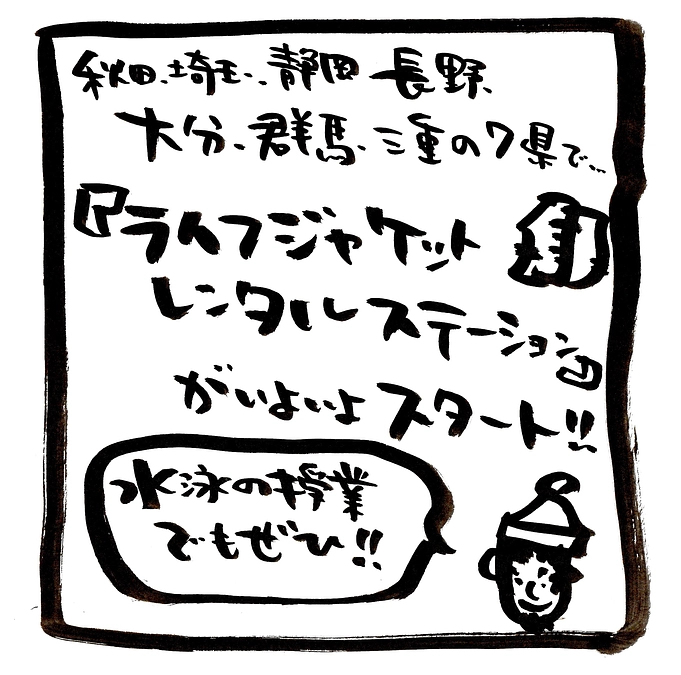 秋田、埼玉、静岡 長野、
大分、群馬、三重の7県で…
『ライフジャケット
レンタルステーション』
がいよいよスタート!!
水泳の授業
でもぜひ!!